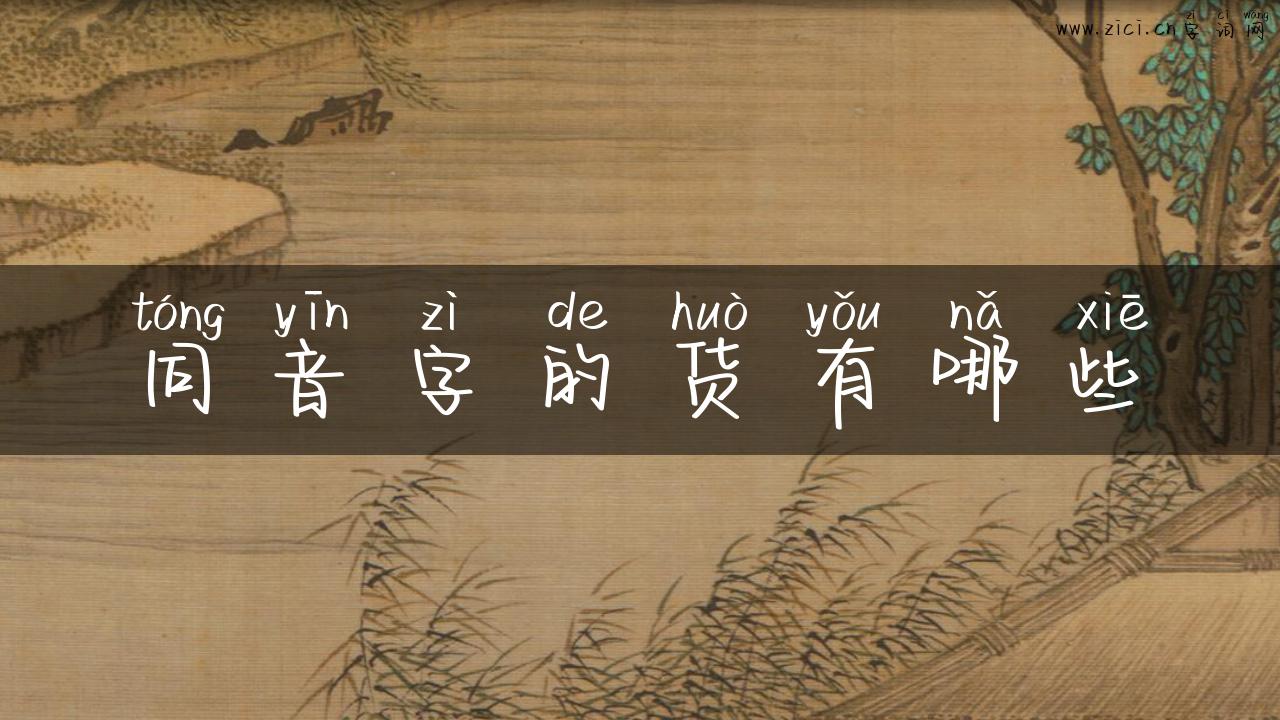 zì cí wǎng
www.zici.cn字词网
tóng yīn zì de huò yǒu nǎ xiē
同音字的货有哪些